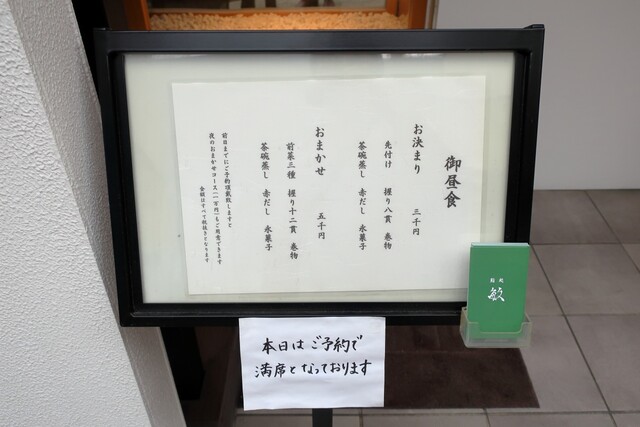 御昼食
お決まり 三千円
先付け 握り八貫 巻物
茶碗蒸し 赤だし 水菓子
おまかせ 五千円
前菜三種 握り十二貫 巻物
茶碗蒸し 赤だし 水菓子
前日までにご予約頂戴致しますと
夜のおまかせコース(一万円)もご用意できます
金額はすべて税抜きとなります
鮨処
敏
本日はご予約で
満席となっております